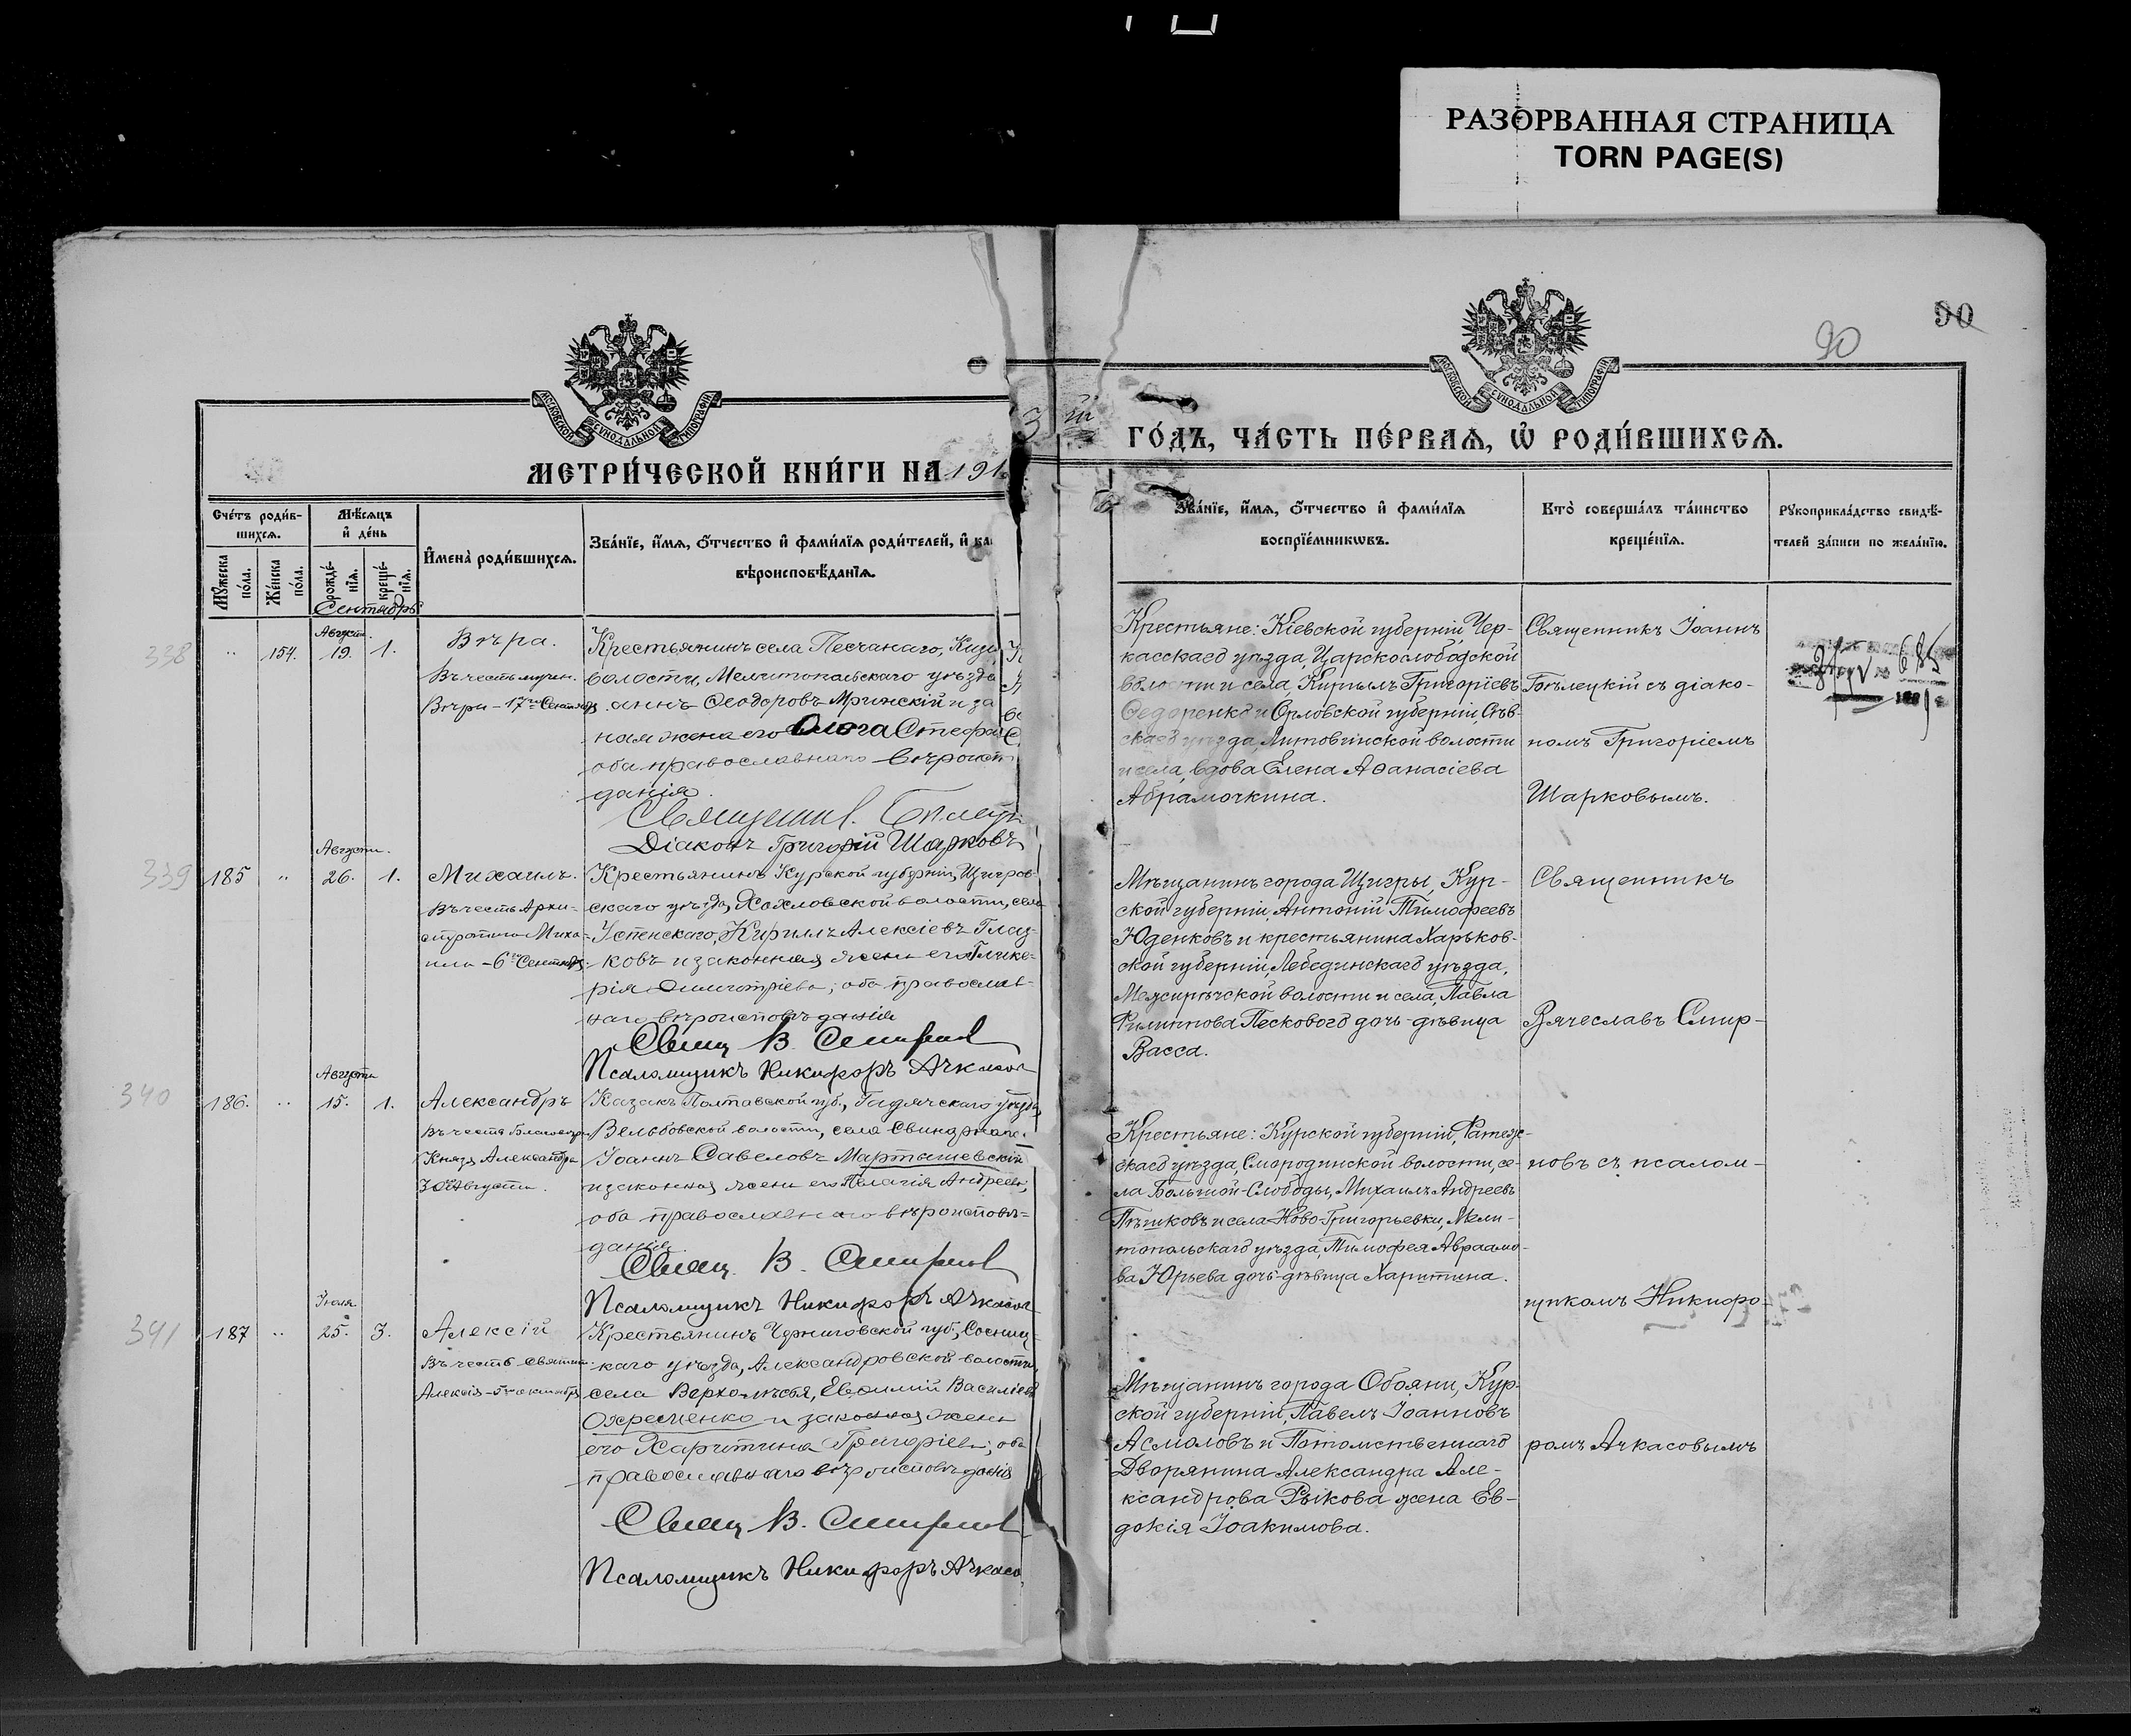 РАЗОРВАННАЯ СТРАНИЦА
TORN PAGE(S)
90
90
МОСКОВСКОЙ СѴНОДАЛЬНОЙ ТИПОГРАФІИ
МОСКОВСКОЙ СѴНОДАЛЬНОЙ ТИПОГРАФІИ
МЕТРИ́ЧЕСКОЙ КНИ́ГИ НА 191
3 й ГО́ДЪ, ЧА́СТЬ ПЕ́РВАѦ, Ѡ҆ РОДИ́ВШИХСѦ.
Сче́тъ роди́в-
шихсѧ.
Мꙋ́жеска по́ла.
Же́нска по́ла.
Мѣ́сѧцъ и҆ де́нь
рожде́-нїѧ.
креще́-нїѧ.
И҆мена̀ роди́вшихсѧ.
Зва́нїе, и҆́мѧ, ѻ҆́тчество и҆ фами́лїѧ роди́телей, и҆ ка
вѣроисповѣ́данїѧ.
Зва́нїе, и҆́мѧ, ѻ҆́тчество и҆ фами́лїѧ
воспрїе́мникѡвъ.
Кто̀ соверша́лъ та́инство
креще́нїѧ.
Рꙋкоприкла́дство свидѣ́-
телей за́писи по жела́нїю.
Сентябрь
338
" 154. Августа. 19. 1.
Вѣра.
Въ честь мучен.
Вѣры - 17го Сентября
Крестьянинъ села Песчанаго,
волости, Мелитопольскаго уѣзда
аннъ Ѳеодоровъ Мринскій и за
ная жена его Ольга Стефа
оба православнаго вѣроисп
данія.
Священник.
Діаконъ Григорій Шарковъ
Крестьяне: Кіевской губерніи, Чер-
касскаго уѣзда, Царскослободской
волости и села, Кириллъ Григоріевъ
Федоренко и Орловской губерніи, Сѣв-
скаго уѣзда, Литовчинской волости
и села, вдова Елена Аѳанасіева
Абрамочкина.
Священникъ Іоаннъ
Бѣлецкій съ діако-
номъ Григоріемъ
Шарковымъ.
685
339
185 " Августа. 26. 1.
Михаилъ.
Въ честь Архи-
стратига Миха-
ила - 6го Сентября
Крестьянинъ Курской губерніи, Щигров-
скаго уѣзда, Хохловской волости, села
Успенскаго, Кириллъ Алексіевъ Глаз-
ковъ и законная жена его Глике-
рія Димитріева; оба православ-
наго вѣроисповѣданія
Свящ В. Смирнов
Псаломщикъ Никифоръ Ачкасов
Мѣщанинъ города Щигры, Кур-
ской губерніи, Антоній Тимофеевъ
Юденковъ и крестьянина Харьков-
ской губерніи, Лебединскаго уѣзда,
Межиричской волости и села, Павла
Филиппова Пескового дочь-дѣвица
Васса.
Священникъ
Вячеславъ Смир-
340
186. " Августа 15. 1.
Александръ
Въ честь Благовѣр.
Князя Александра
30го Августа.
Казакъ Полтавской губ., Гадячскаго уѣзда,
Вельбовской волости, села
Іоаннъ Савеловъ Мартышевскій
и законная жена его Пелагія Андреева;
оба православнаго вѣроисповѣ-
данія.
Свящ. В. Смирнов
Псаломщикъ Никифоръ Ачкасов
Крестьяне: Курской губерніи, Фатеж-
скаго уѣзда, Смородинской волости, се-
ла Большой-Слободы, Михаилъ Андреевъ
Пѣшковъ и села Ново-Григорьевки, Мели-
топольскаго уѣзда, Тимофея Авраамо-
ва Юрьева дочь-дѣвица Харитина.
новъ съ псалом-
щикомъ Никифо-
341
187 " Іюля 25. 3.
Алексій
Въ честь Святит.
Алексія - 5го октября
Крестьянинъ Черниговской губ., Сосниц-
каго уѣзда, Александровской волости,
села Верхолѣсья, Евѳимій Василіевъ
Охременко и законная жена
его Харитина Григоріева; оба
православнаго вѣроисповѣданія
Свящ В. Смирнов
Псаломщикъ Никифоръ Ачкасо
Мѣщанинъ города Обояни, Кур-
ской губерніи, Павелъ Іоанновъ
Асмоловъ и Потомственнаго
Дворянина Александра Але-
ксандрова Рыкова жена Ев-
докія Іоакимова.
ромъ Ачкасовымъ